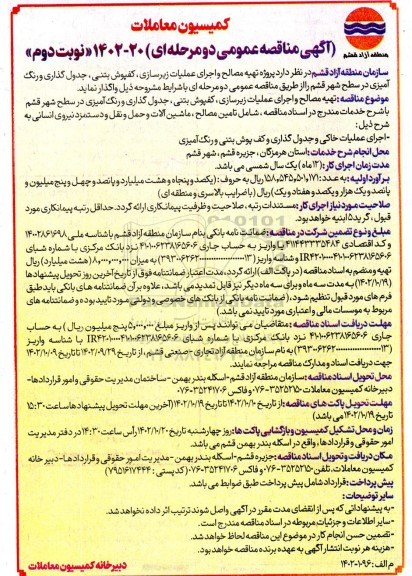 کمیسیون معاملات
منطقه آزاد قشم
(آگهی مناقصه عمومی دو مرحله ای) ۲۰-۱۴۰۲ «نوبت دوم»
سازمان منطقه آزاد قشم در نظر دارد پروژه تهیه مصالح و اجرای عملیات زیرسازی، کفپوش بتنی، جدول گذاری و رنگ
آمیزی در سطح شهر قشم را از طریق مناقصه عمومی دو مرحله ای با شرایط مشروحه ذیل واگذار نماید.
موضوع مناقصه: تهیه مصالح و اجرای عملیات زیرسازی، کفپوش بتنی، جدول گذاری و رنگ آمیزی در سطح شهر قشم
با شرح خدمات مندرج در اسناد مناقصه، شامل تامین مصالح، ماشین آلات و حمل و نقل و دستمزد نیروی انسانی به
شرح ذیل:
-اجرای عملیات خاکی و جدول گذاری و کف پوش بتنی و رنگ آمیزی
محل انجام شرح خدمات: استان هرمزگان، جزیره قشم، شهر قشم
مدت زمان اجرای کار: (۱۲ ماه) یک سال شمسی می باشد.
برآورد اولیه: به عدد: ۱۵۸,۵۴۵,۵۰۱,۱۷۱ ریال به حروف: (یکصد و پنجاه و هشت میلیارد و پانصد و چهل و پنج میلیون و
پانصد و یک هزار و یکصد و هفتاد و یک) ریال (با ضرایب بالاسری و منطقه ای)
صلاحیت مورد نیاز اجرای کار: مستندات رتبه، صلاحیت و ظرفیت پیمانکاری ارائه گردد. حداقل رتبه پیمانکاری مورد
قبول، گرید ۵ ابنیه خواهد بود.
مبلغ و نوع تضمین شرکت در مناقصه: ضمانت نامه بانکی بنام سازمان منطقه آزاد قشم با شناسه ملی
و کد اقتصادی ۴۱۱۴۴۳۳۳۵۴۸۴ یا واریز به حساب جاری ۴۱۰۱۰۰۶۲۳۸۱۶۵۶۰۶ نزد بانک مرکزی با شماره شبای
و شناسه واریز به میزان ۸,۰۰۰,۰۰۰,۰۰۰ (هشت میلیارد) ریال
تهیه و منضم به اسناد مناقصه (در پاکت الف) ارائه گردد، مدت اعتبار ضمانتنامه فوق از تاریخ آخرین روز تحویل پیشنهادها
(۱۴۰۲/۱۰/۱۹) به مدت سه ماه و برای سه ماه دیگر نیز قابل تمدید می باشد، علاوه بر آن ضمانتنامه های بانکی باید طبق
فرم های مورد قبول تنظیم شود، (ضمانت نامه بانکی از بانک های خصوصی و دولتی مورد تایید بوده و ضمانتنامه های
مربوط به موسسات مالی و اعتباری مورد تایید نمی باشد)
مهلت دریافت اسناد مناقصه: متقاضیان می توانند پس از واریز مبلغ ۵,۰۰۰,۰۰۰ (پنج میلیون ریال) به حساب
جاری ۴۱۰۱۰۰۶۲۳۸۱۶۵۶۰۶ نزد بانک مرکزی با شماره شبای با شناسه واریز
به نام سازمان منطقه آزاد تجاری صنعتی قشم، از تاریخ ۱۴۰۲/۰۹/۲۹ تا تاریخ ۱۴۰۲/۱۰/۰۹
جهت دریافت اسناد و مدارک مناقصه مراجعه نمایند.
محل تحویل اسناد مناقصه: سازمان منطقه آزاد قشم - اسکله بندر بهمن - ساختمان مدیریت حقوقی و امور قراردادها -
دبیرخانه کمیسیون معاملات ۳۵۲۵۲۱۵۰-۰۷۶ و فاکس ۳۵۲۴۱۷۰۶-۰۷۶
مهلت تحویل پاکت های مناقصه: از تاریخ ۱۴۰۲/۱۰/۱۰ تا تاریخ ۱۴۰۲/۱۰/۱۹ (آخرین مهلت تحویل پیشنهادها ساعت ۱۵:۳۰
تاریخ ۱۴۰۲/۱۰/۱۹ می باشد)
زمان و محل تشکیل کمیسیون و بازگشایی پاکت ها: روز چهارشنبه تاریخ ۱۴۰۲/۱۰/۲۰ رأس ساعت ۱۴:۳۰ در دفتر مدیریت
امور حقوقی و قراردادها، واقع در اسکله بندر بهمن قشم می باشد.
مکان دریافت و تحویل اسناد مناقصه: جزیره قشم - اسکله بندر بهمن - مدیریت امور حقوقی و قراردادها - دبیرخانه
کمیسیون معاملات، تلفن ۳۵۲۵۲۱۵۰-۰۷۶ و فاکس ۳۵۲۴۱۷۰۶-۰۷۶ (کد پستی: ۷۹۵۱۶۱۷۴۴۴)
پیش پرداخت: قرارداد شامل پیش پرداخت طبق ضوابط می باشد.
سایر توضیحات:
-به پیشنهاداتی که پس از انقضای مدت مقرر در آگهی واصل شوند ترتیب اثر داده نخواهد شد.
-سایر اطلاعات و جزئیات مربوطه در اسناد مناقصه مندرج است.
-تضمین حسن انجام کار در موضوع این مناقصه لحاظ خواهد شد.
-هزینه هر نوبت انتشار آگهی به عهده برنده مناقصه خواهد بود.
م الف: ۱۴۰۲-۱۰۹۶
دبیرخانه کمیسیون معاملات